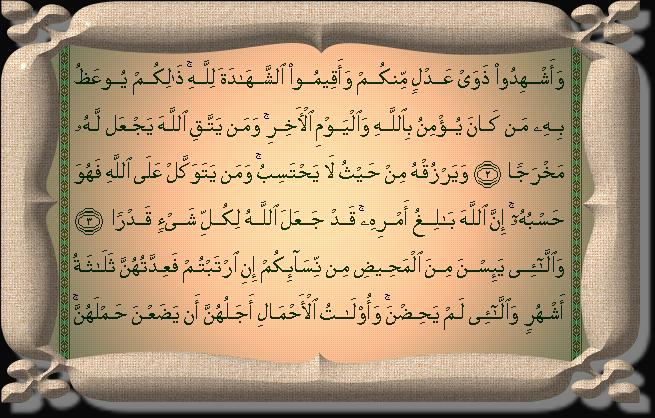 وَأَشْهِدُوا۟ ذَوَىْ عَدْلٍ مِّنكُمْ وَأَقِيمُوا۟ ٱلشَّهَٰدَةَ لِلَّهِ ۚ ذَٰلِكُمْ يُوعَظُ
بِهِۦ مَن كَانَ يُؤْمِنُ بِٱللَّهِ وَٱلْيَوْمِ ٱلْأَخِرِ ۚ وَمَن يَتَّقِ ٱللَّهَ يَجْعَل لَّهُۥ
مَخْرَجًا ٢ وَيَرْزُقْهُ مِنْ حَيْثُ لَا يَحْتَسِبُ ۚ وَمَن يَتَوَكَّلْ عَلَى ٱللَّهِ فَهُوَ
حَسْبُهُۥٓ ۚ إِنَّ ٱللَّهَ بَٰلِغُ أَمْرِهِۦ ۚ قَدْ جَعَلَ ٱللَّهُ لِكُلِّ شَىْءٍ قَدْرًا ٣
وَٱلَّٰٓـِٔى يَئِسْنَ مِنَ ٱلْمَحِيضِ مِن نِّسَآئِكُمْ إِنِ ٱرْتَبْتُمْ فَعِدَّتُهُنَّ ثَلَٰثَةُ
أَشْهُرٍ وَٱلَّٰٓـِٔى لَمْ يَحِضْنَ ۚ وَأُو۟لَٰتُ ٱلْأَحْمَالِ أَجَلُهُنَّ أَن يَضَعْنَ حَمْلَهُنَّ ۚ